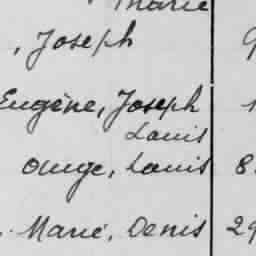 Marie
, Joseph
Eugène, Joseph
Louis
ange, Louis 8
. Marie, Denis 29